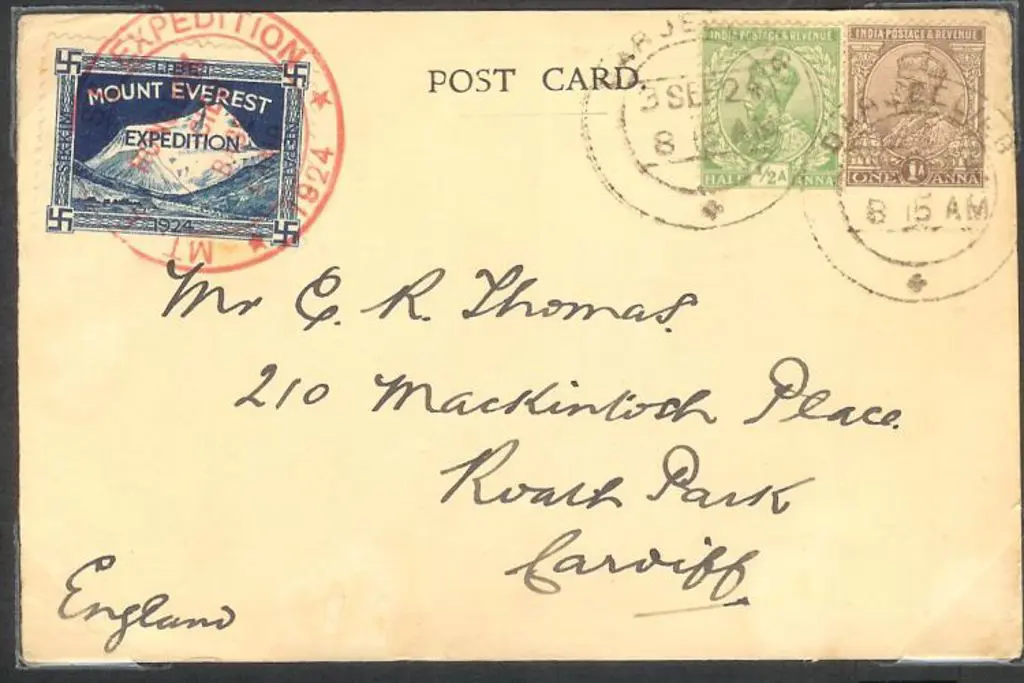 EXPEDITION
TIBET
MOUNT EVEREST
EXPEDITION
SIKKIM
1924
1924
MT
POST CARD.
DARJEELING
3 SEP 24
8 15 AM
INDIA POSTAGE & REVENUE
HALF 1/2A ANNA
INDIA POSTAGE & REVENUE
ONE 1A ANNA
DARJEELING
8 15 AM
Mr C. R. Thomas.
210 Mackintosh Place.
Roath Park
Cardiff
England